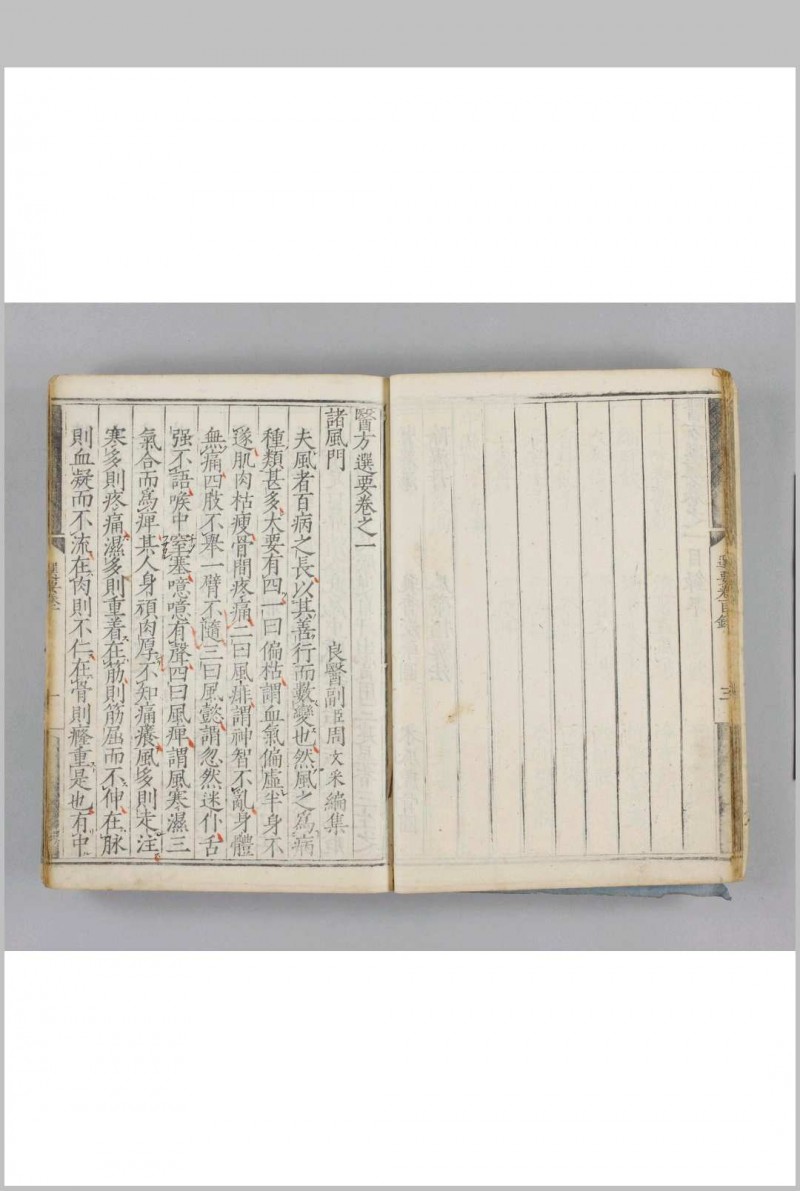 選要卷目録
三
醫方選要卷之一
良醫副臣周文采編集
諸風門
夫風者百病之長以其善行而數變也然風之爲病
種類甚多大要有四一曰偏枯謂血氣偏虛半身不
遂肌肉枯瘦骨間疼痛二曰風痱謂神智不亂身體
無痛四肢不舉一臂不隨三曰風懿謂忽然迷仆舌
强不語喉中窒塞噫噫有聲四曰風痺謂風寒濕三
氣合而爲痺其人身頑肉厚不知痛癢風多則走注
寒多則疼痛濕多則重着在筋則筋屈而不伸在脉
則血凝而不流在肉則不仁在骨則癃重是也有中
選要卷一
一